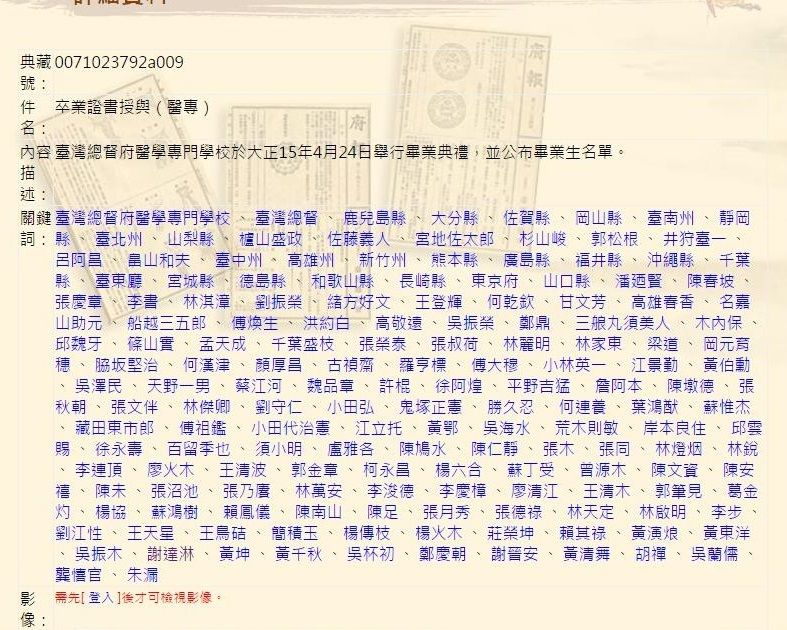 典藏 0071023792a009
號：
件 卒業證書授與（醫專）
名：
內容 臺灣總督府醫學專門學校於大正15年4月24日舉行畢業典禮，並公布畢業生名單。
描
述：
關鍵 臺灣總督府醫學專門學校 、 臺灣總督 、 鹿兒島縣 、 大分縣 、 佐賀縣 、 岡山縣 、 臺南州 、 靜岡
詞： 縣 、 臺北州 、 山梨縣 、 櫨山盛政 、 佐藤義人 、 宮地佐太郎 、 杉山峻 、 郭松根 、 井狩臺一 、
呂阿昌 、 畠山和天 、 臺中州 、 高雄州 、 新竹州 、 熊本縣 、 廣島縣 、 福井縣 、 沖繩縣 、 千葉
縣 、 臺東廳 、 宮城縣 、 德島縣 、 和歌山縣 、 長崎縣 、 東京府 、 山口縣 、 潘迺賢 、 陳春坡 、
張慶章 、 李書 、 林淇漳 、 劉振榮 、 緒方好文 、 王登輝 、 何乾欽 、 甘文芳 、 高雄春香 、 名嘉
山助元 、 船越三五郎 、 傅煥生 、 洪約白 、 高敬遠 、 吳振榮 、 鄭鼎 、 三舩丸須美人 、 木內保 、
邱魏牙 、 篠山實 、 孟天成 、 千葉盛枝 、 張榮泰 、 張叔荷 、 林麗明 、 林家東 、 梁道 、 岡元育
穗 、 脇坂堅治 、 何漢津 、 顏厚昌 、 古禎齋 、 羅亨標 、 傅大穆 、 小林英一 、 江景勤 、 黃伯勳
、 吳澤民 、 天野一男 、 蔡江河 、 魏品章 、 許棍 、 徐阿煌 、 平野吉猛 、 詹阿本 、 陳墩德 、 張
秋朝 、 張文伴 、 林傑卿 、 劉守仁 、 小田弘 、 鬼塚正憲 、 勝久忍 、 何連養 、 葉鴻猷 、 蘇惟杰
、 藏田東市郎 、 傅祖鑑 、 小田代治憲 、 江立托 、 黃鄂 、 吳海水 、 荒木則敏 、 岸本良住 、 邱雲
賜 、 徐永壽 、 百留季也 、 須小明 、 盧雅各 、 陳鳩水 、 陳仁靜 、 張木 、 張同 、 林燈烟 、 林銳
、 李連頂 、 廖火木 、 王清波 、 郭金章 、 柯永昌 、 楊六合 、 蘇丁受 、 曾源木 、 陳文資 、 陳安
禧 、 陳耒 、 張沼池 、 張乃賡 、 林萬安 、 李浚德 、 李慶樟 、 廖清江 、 王清木 、 郭筆見 、 葛金
灼 、 楊協 、 蘇鴻樹 、 賴鳳儀 、 陳南山 、 陳足 、 張月秀 、 張德祿 、 林天定 、 林啟明 、 李步 、
劉江性 、 王天星 、 王鳥硈 、 簡積玉 、 楊傳枝 、 楊火木 、 莊榮坤 、 賴其祿 、 黃演烺 、 黃東洋
、 吳振木 、 謝達淋 、 黃坤 、 黃千秋 、 吳杯初 、 鄭慶朝 、 謝晉安 、 黃清舞 、 胡禪 、 吳蘭儒 、
龔慎官 、 朱漏
影 需先[ 登入 ]後才可檢視影像。
像：
府報
府